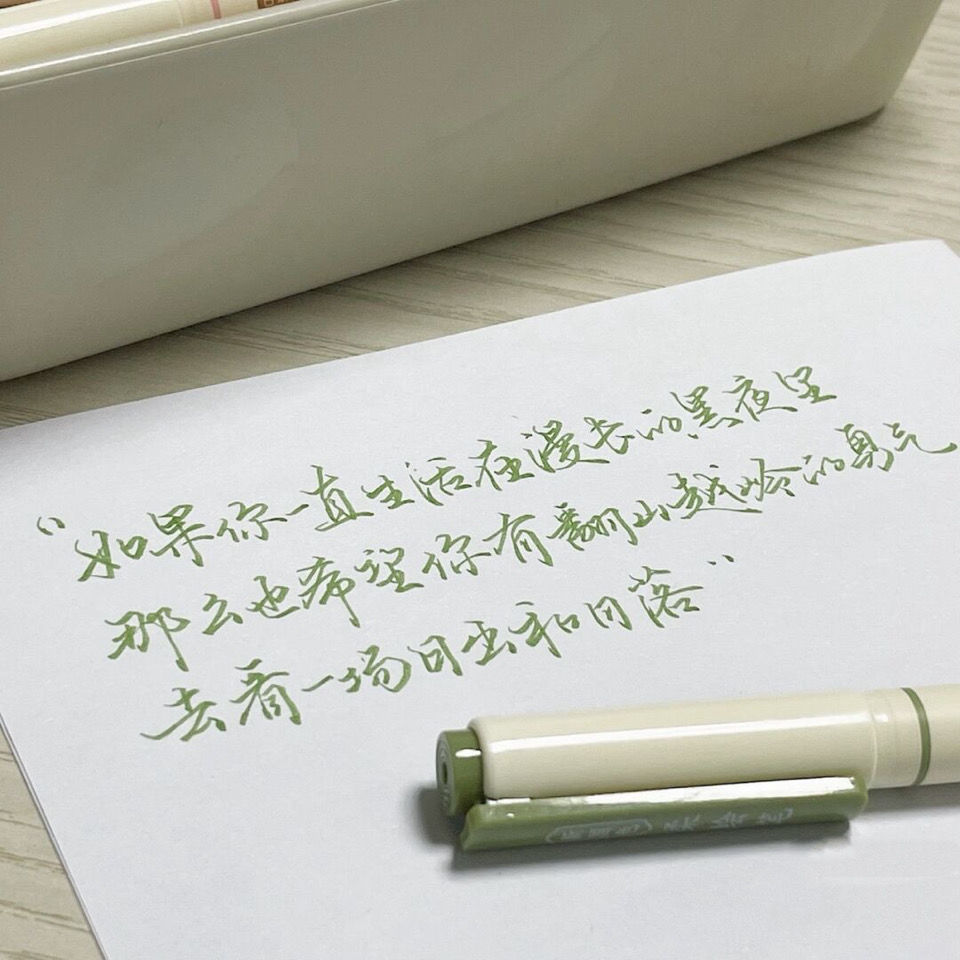 “如果你一直生活在漫长的黑夜里
那么也希望你有翻山越岭的勇气
去看一场日出和日落”